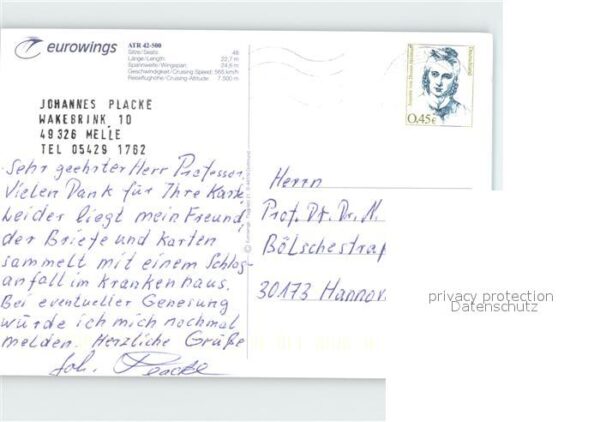 eurowings
ATR 42-500
Sitze/Seats: 48
Länge/Length: 22,7 m
Spannweite/Wingspan: 24,6 m
Geschwindigkeit/Cruising Speed: 565 km/h
Reiseflughöhe/Cruising-Altitude: 7.500 m
Deutschland
0,45€
JOHANNES PLACKE
WAKEBRINK 10
49326 MELLE
TEL 05429 1762
Sehr geehrter Herr Professor,
Vielen Dank für Ihre Karte
Leider liegt mein Freund,
der Briefe und Karten
sammelt mit einem Schlag-
anfall im Krankenhaus.
Bei eventueller Genesung
würde ich mich nochmal
melden. Herzliche Grüße
Joh. Placke
Herrn
Prof. Dr. Dr. M.
Bölschestraß
30173 Hannov
privacy protection
Datenschutz